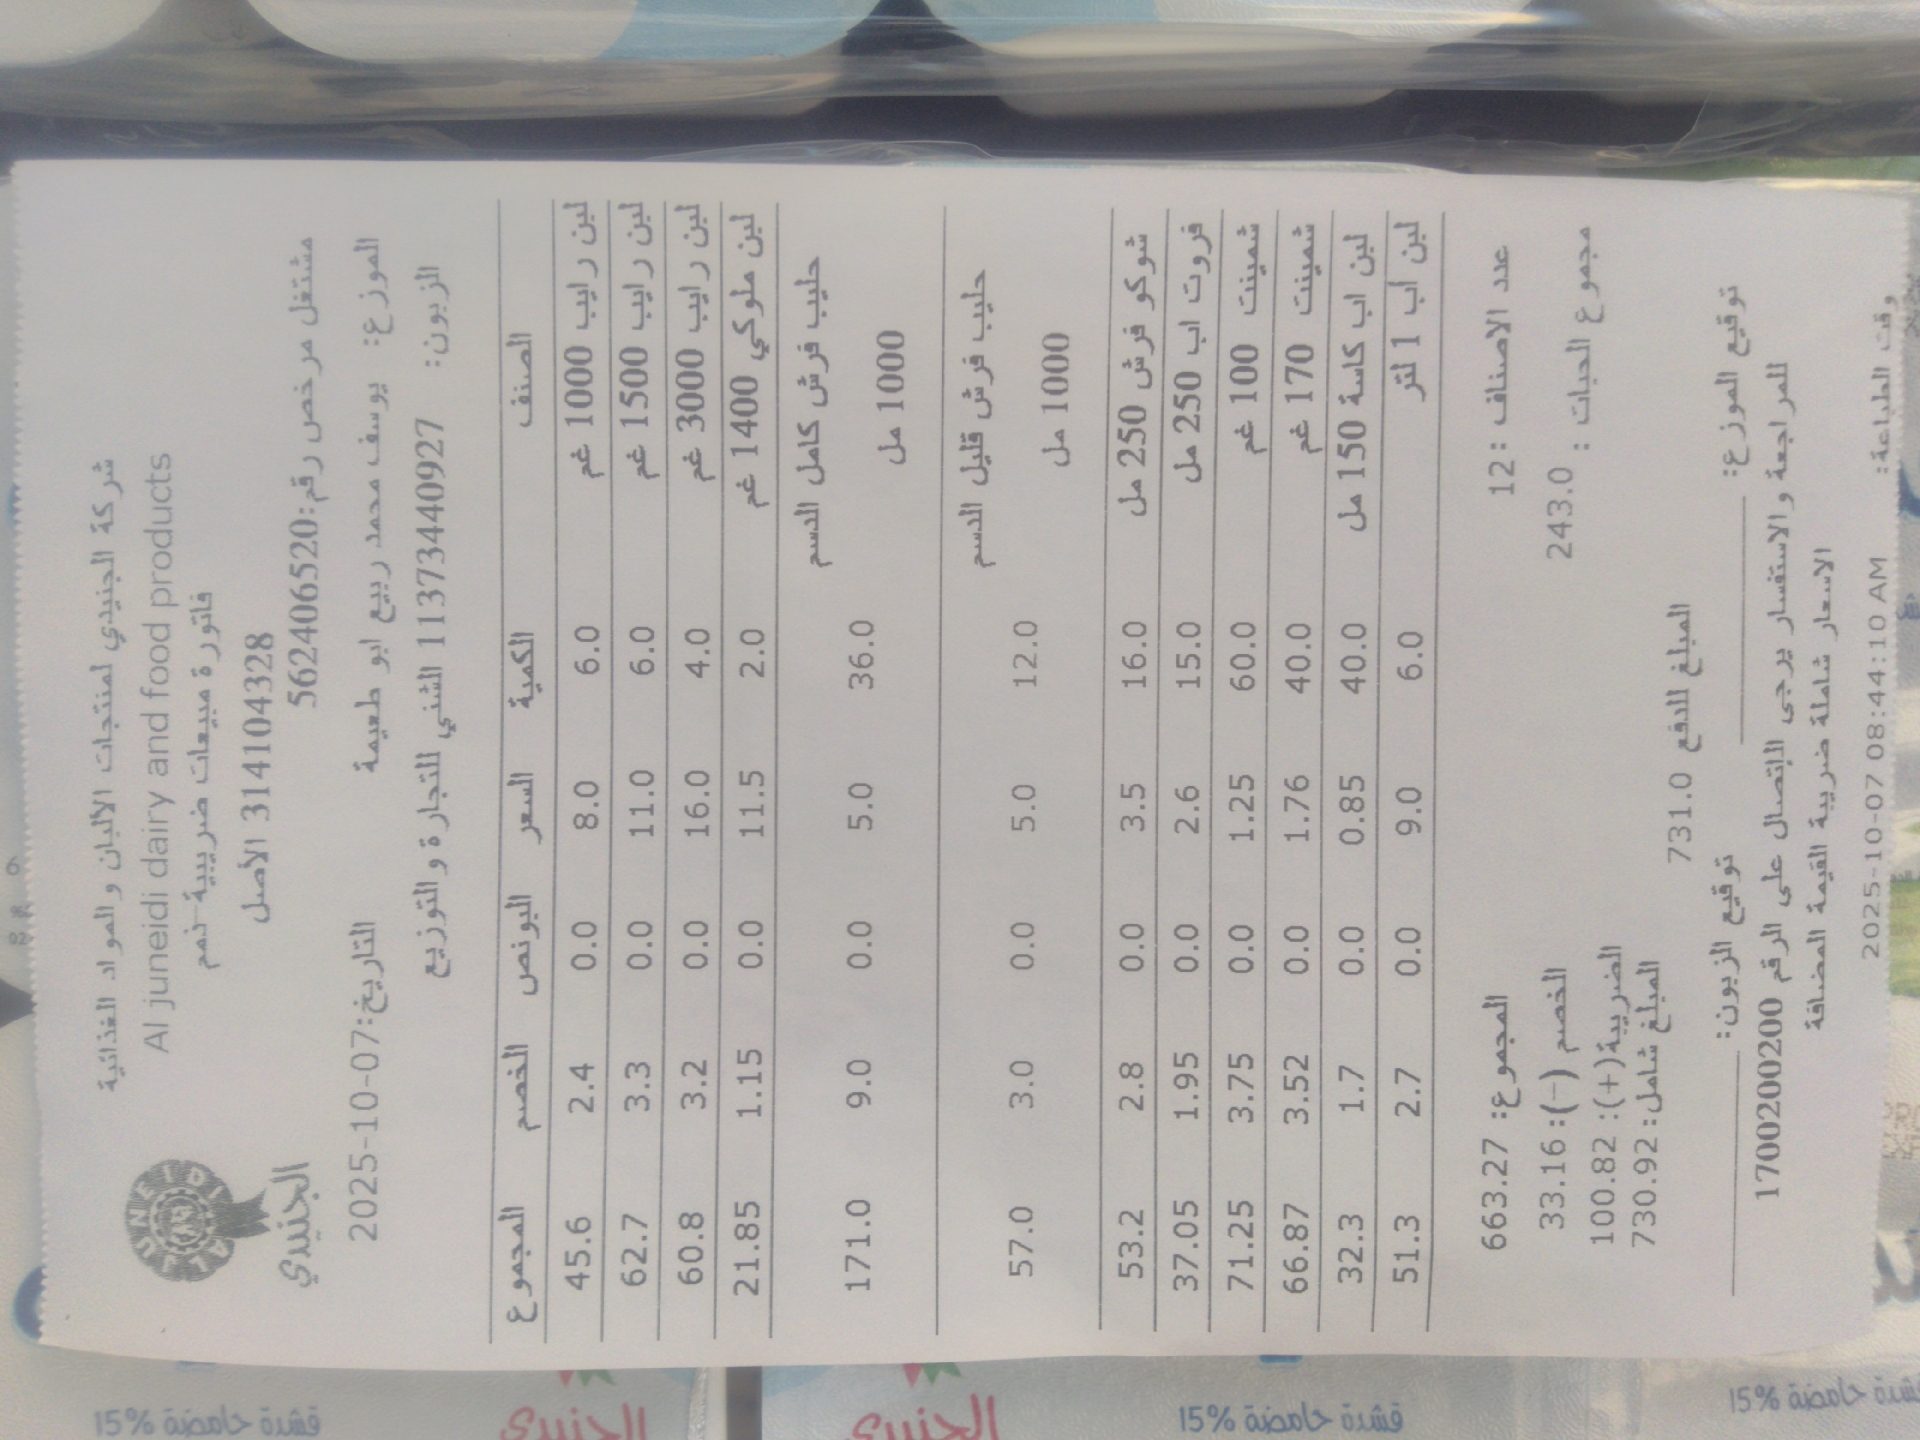 شركة الجنيدي لمنتجات الألبان والمواد الغذائية
Al juneidi dairy and food products
فاتورة مبيعات ضريبية-ذمم
3141104328 الأصل
مشتغل مرخص رقم:562406520
الجنيدي
الموزع: يوسف محمد ربيع ابو طعيمة التاريخ:2025-10-07
الزبون: 11373440927 الشني للتجارة والتوزيع
الصنف الكمية السعر البونص الخصم المجموع
لبن رايب 1000 غم 6.0 8.0 0.0 2.4 45.6
لبن رايب 1500 غم 6.0 11.0 0.0 3.3 62.7
لبن رايب 3000 غم 4.0 16.0 0.0 3.2 60.8
لبن ملوكي 1400 غم 2.0 11.5 0.0 1.15 21.85
حليب فرش كامل الدسم 36.0 5.0 0.0 9.0 171.0
1000 مل
حليب فرش قليل الدسم 12.0 5.0 0.0 3.0 57.0
1000 مل
شوكو فرش 250 مل 16.0 3.5 0.0 2.8 53.2
فروت اب 250 مل 15.0 2.6 0.0 1.95 37.05
شمينت 100 غم 60.0 1.25 0.0 3.75 71.25
شمينت 170 غم 40.0 1.76 0.0 3.52 66.87
لبن اب كاسة 150 مل 40.0 0.85 0.0 1.7 32.3
لبن اب 1 لتر 6.0 9.0 0.0 2.7 51.3
عدد الاصناف : 12 المجموع: 663.27
مجموع الحبات : 243.0 الخصم (-): 33.16
الضريبة(+): 100.82
المبلغ شامل: 730.92
المبلغ للدفع 731.0
توقيع الموزع: توقيع الزبون:
للمراجعة والاستفسار يرجى الإتصال على الرقم 1700200200
الاسعار شاملة ضريبة القيمة المضافة
وقت الطباعة: 2025-10-07 08:44:10 AM
قشدة حامضة 15%
قشدة حامضة 15%
قشدة حامضة 15%